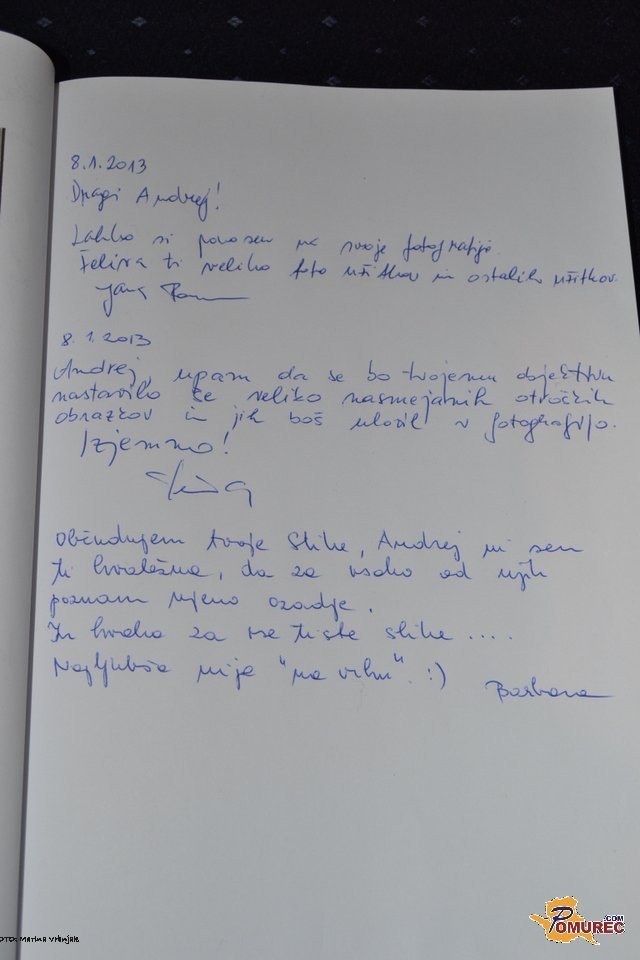 8.1.2013
Dragi Andrej!
Lahko si ponosen na svoje fotografije.
Želiva ti veliko foto užitkov in ostalih užitkov.
Jana
8.1.2013
Andrej, upam da se bo tvojemu objektivu
nastavilo še veliko nasmejanih otroških
obrazkov in jih boš uložil v fotografijo.
Izjemno!
Občudujem tvoje slike, Andrej in sem
ti hvaležna, da za vsako od njih
poznam njeno ozadje.
In hvala za vse tiste slike ....
Najljubša mi je "na vrhu". :)
Barbara
FOTO: Marina Vrbnjak
POMUREC.COM